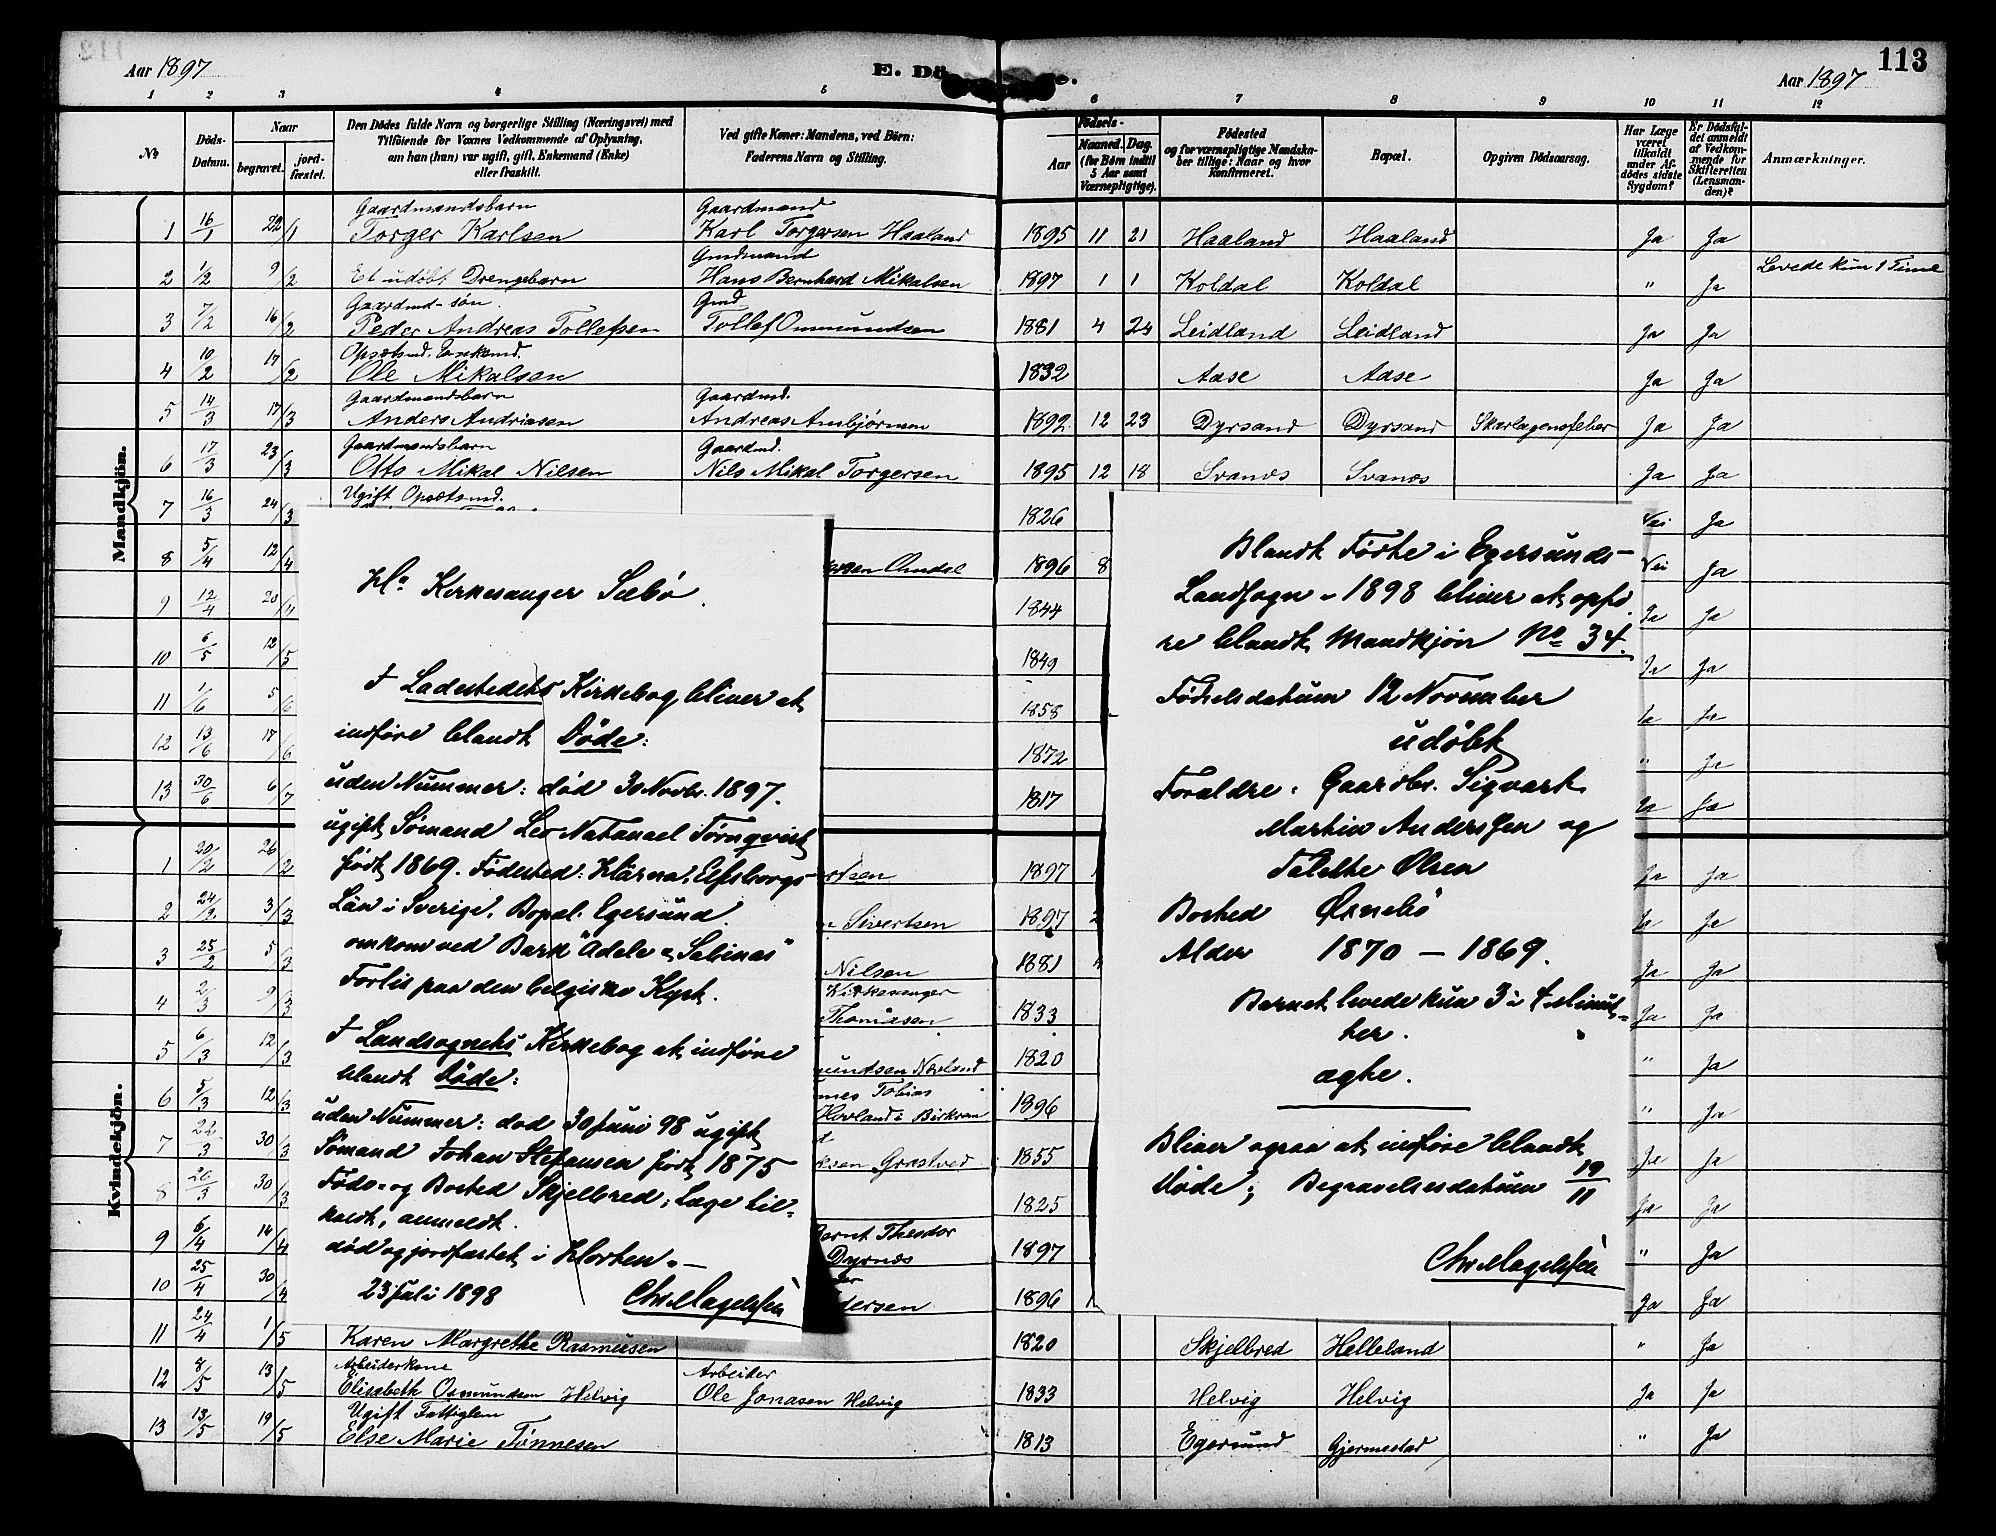 Aar 1897
E. Dö
113
Aar 1897
1 2 3 4 5 6 7 8 9 10 11 12
No
Döds-Datum.
Naar
begravet.
jord-fæstet.
Den Dödes fulde Navn og borgerlige Stilling (Næringsvei) med
Tilföiende for Voxnes Vedkommende af Oplysning,
om han (hun) var ugift, gift, Enkemand (Enke)
eller fraskilt.
Ved gifte Koner: Mandens, ved Börn:
Faderens Navn og Stilling.
Födsels-
Aar
Maaned. Dag.
(for Börn indtil
5 Aar samt
Værnepligtige).
Födested
og for værnepligtige Mandska-
ber tillige: Naar og hvor
konfirmeret.
Bopæl.
Opgiven Dödsaarsag.
Har Læge
været
tilkaldt
under Af-
dödes sidste
Sygdom?
Er Dödsfal-
det anmeldt
af Vedkom-
mende for
Skifteretten
(Lensman-
den)?
Anmærkninger.
Mandkjön.
Gaardmandsbarn Gaardmand
1 16/1 22/1 Torger Karlsen Karl Torgersen Haaland 1895 11 21 Haaland Haaland Ja Ja
Gmdmand
2 1/2 9/2 Et udöbt Drengebarn Hans Bernhard Mikalsen 1897 1 1 Koldal Koldal " Ja Levede kun 1 Time
Gaardmd-sön. Gmd
3 7/2 16/2 Peder Andreas Tollefsen Tollef Ommundsen 1881 4 24 Leidland Leidland Ja Ja
Opsætsmd. Enkemd.
4 10/2 17/2 Ole Mikalsen 1832 Aase Aase Ja Ja
Gaardmandsbarn Gaardmd.
5 14/3 17/3 Anders Andriasen Andreas Ansbjörnsen 1892 12 23 Dyrsand Dyrsand Skarlagensfeber Ja Ja
Gaardmandsbarn Gaardmd.
6 17/3 23/3 Otto Mikal Nilsen Nils Mikal Torgersen 1895 12 18 Svanes Svanæs Ja Ja
Ugift Opsætsmd.
7 16/3 24/3 1826 Nei Ja
8 5/4 12/4 Omdal 1896 8 Nei Ja
9 12/4 20/4 1844 Ja Ja
10 6/5 12/5 1849 Ja Ja
11 1/6 5/6 1858 Ja Ja
12 13/6 17/6 1872 " Ja
13 30/6 6/7 1817 Ja Ja
Kvindekjön.
1 20/2 26/2 rtsen 1897 Ja Ja
2 24/2 3/3 n Sivertsen 1897 2 Ja Ja
3 25/2 5/3 Nilsen 1881 4 Ja Ja
Kirkesanger
4 2/3 9/3 Thomasen 1833 Ja Ja
5 6/3 12/3 undsen Nevland 1820 " Ja
nes Tobias
6 5/3 12/3 Hovland i Birkrem 1896 " Ja
7 22/3 30/3 ksen Grastved 1855 Ja Ja
8 26/3 30/3 1825 Ja Ja
Bernt Theodor
9 6/4 14/4 Dyrnes 1897 " Ja
10 25/4 30/4 dersen 1896 Ja Ja
11 24/4 1/5 Karen Margrethe Rasmusen 1820 Skjelbred Helleland " Ja
Arbeiderkone Arbeider
12 8/5 13/5 Elisabeth Osmundsen Helvig Ole Jonasen Helvig 1833 Helvig Helvig Ja Ja
Ugift Fattiglem
13 13/5 19/5 Else Marie Tönnesen 1813 Egersund Gjermestad " Ja
Hr. Kirkesanger Sæbø.
I Ladestedets Kirkebog bliver at
indføre blandt Døde:
uden Nummer: død 30 Novbr. 1897.
ugift Sømand Leo Natanael Törnqvist
født 1869. Fødested: Klärna, Elfsborgs-
Län i Sverige. Bopæl. Egersund
omkom ved Bark "Adele & Sabinas"
Forlis paa den belgiske Kyst.
I Landsognets Kirkebog at indføre
blandt Døde:
uden Nummer: død 30 Juni 98 ugift
Sømand Johan Stefansen født 1875
Føde- og Bosted Skjelbred; Læge til-
kaldt, anmeldt.
død og jordfæstet i Horten. -
23 Juli 1898 Chr Magelssen
Blandt Fødte i Egersunds-
Landsogn - 1898 bliver at opfø-
re blandt Mandkjøn No 34.
Fødselsdatum 12 November
udøbt
Forældre: Gaardbr. Sigvart
Martin Anderssen og
Talette Olsen
Bosted Ørnebø
Alder 1870 - 1869.
Barnet levede kun 3 à 4 Minut-
ter.
agte.
Bliver ogsaa at indføre blandt
døde; Begravelsesdatum 19/11
Chr Magelssen